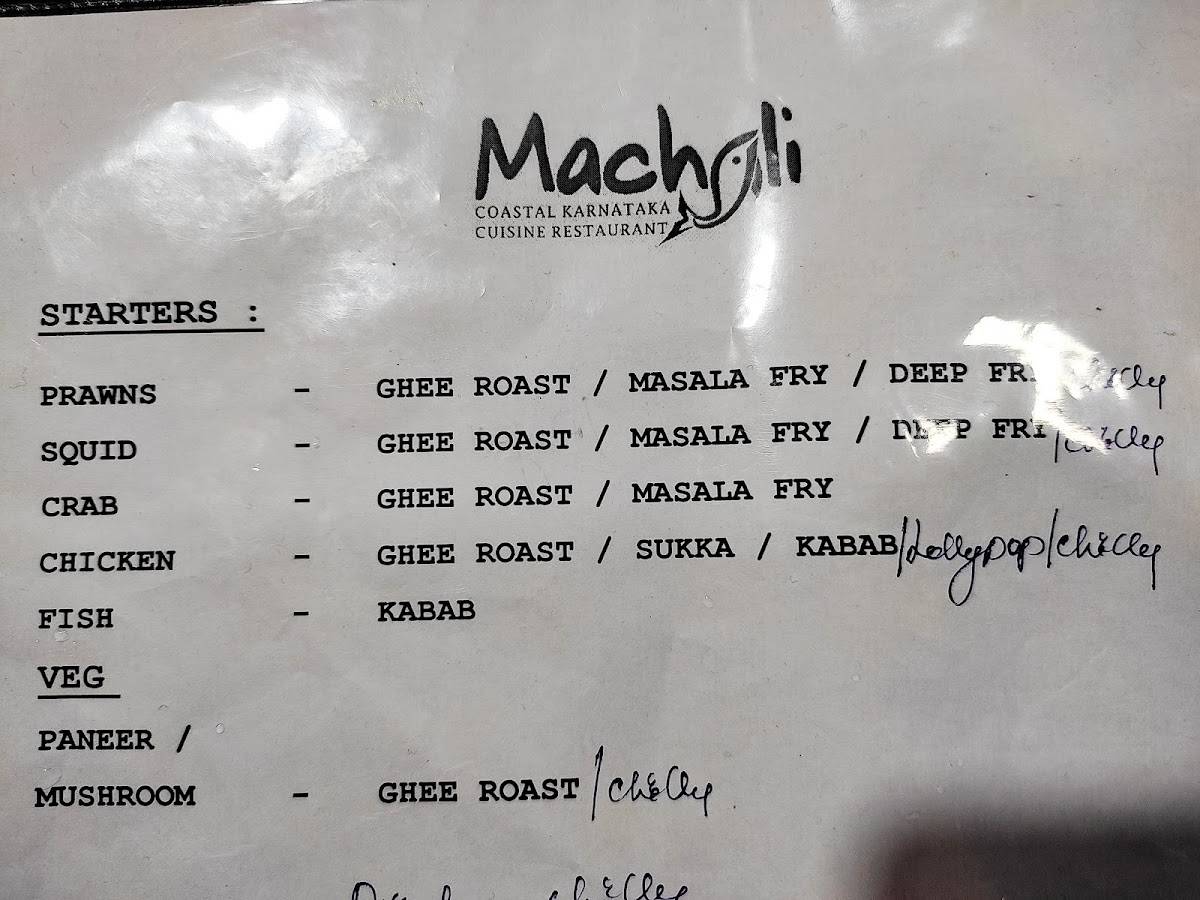 Machali
COASTAL KARNATAKA
CUISINE RESTAURANT
STARTERS :
PRAWNS - GHEE ROAST / MASALA FRY / DEEP FRY
SQUID - GHEE ROAST / MASALA FRY / DEEP FRY /chilly
CRAB - GHEE ROAST / MASALA FRY
CHICKEN - GHEE ROAST / SUKKA / KABAB/Lollypop/chilly
FISH - KABAB
VEG
PANEER /
MUSHROOM - GHEE ROAST /chilly
chilly